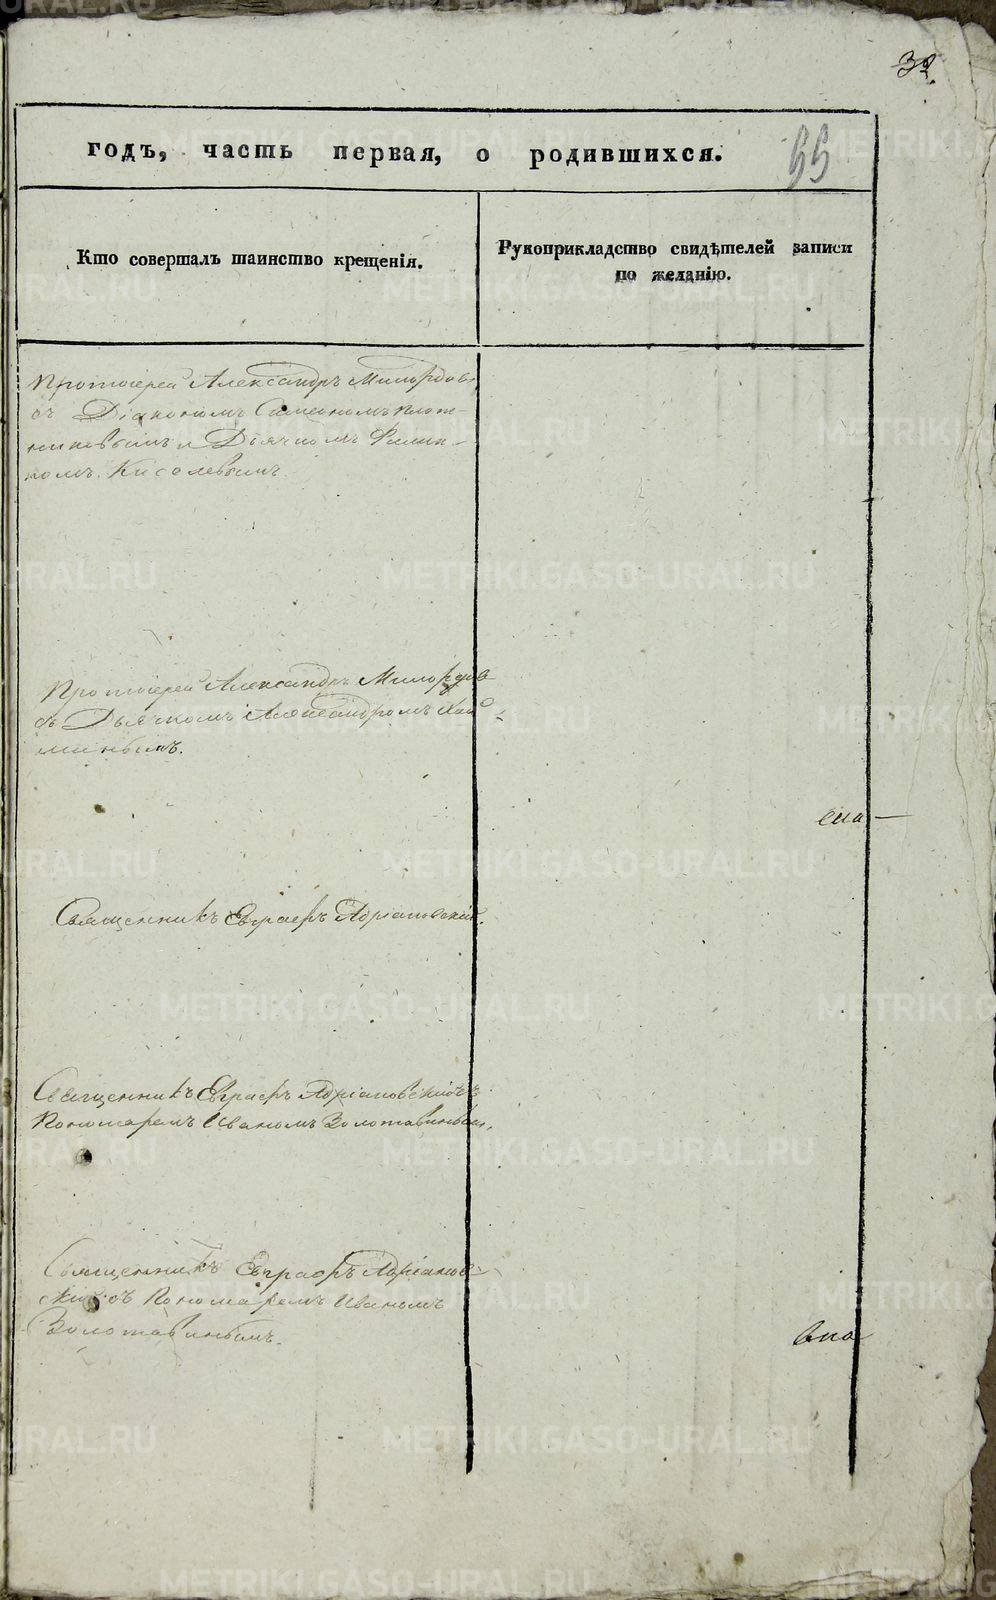 32.
55
годъ, часть первая, о родившихся.
Кто совершалъ таинство крещенія.
Рукоприкладство свидѣтелей записи
по желанію.
Протоіерей Александръ Милордовъ
съ Діакономъ Симеономъ Плот-
никовымъ и Дьячкомъ
Киселевымъ
Протоіерей Александръ Милордовъ
съ Дьячкомъ Александромъ Хай-
минымъ.
Священникъ Евграфъ Адріановскій.
Священникъ Евграфъ Адріановскій съ
Пономаремъ Иваномъ Золотавинымъ.
Священникъ Евграфъ Адріанов-
скій съ Пономаремъ Иваномъ
Золотавинымъ.
METRIKI.GASO-URAL.RU